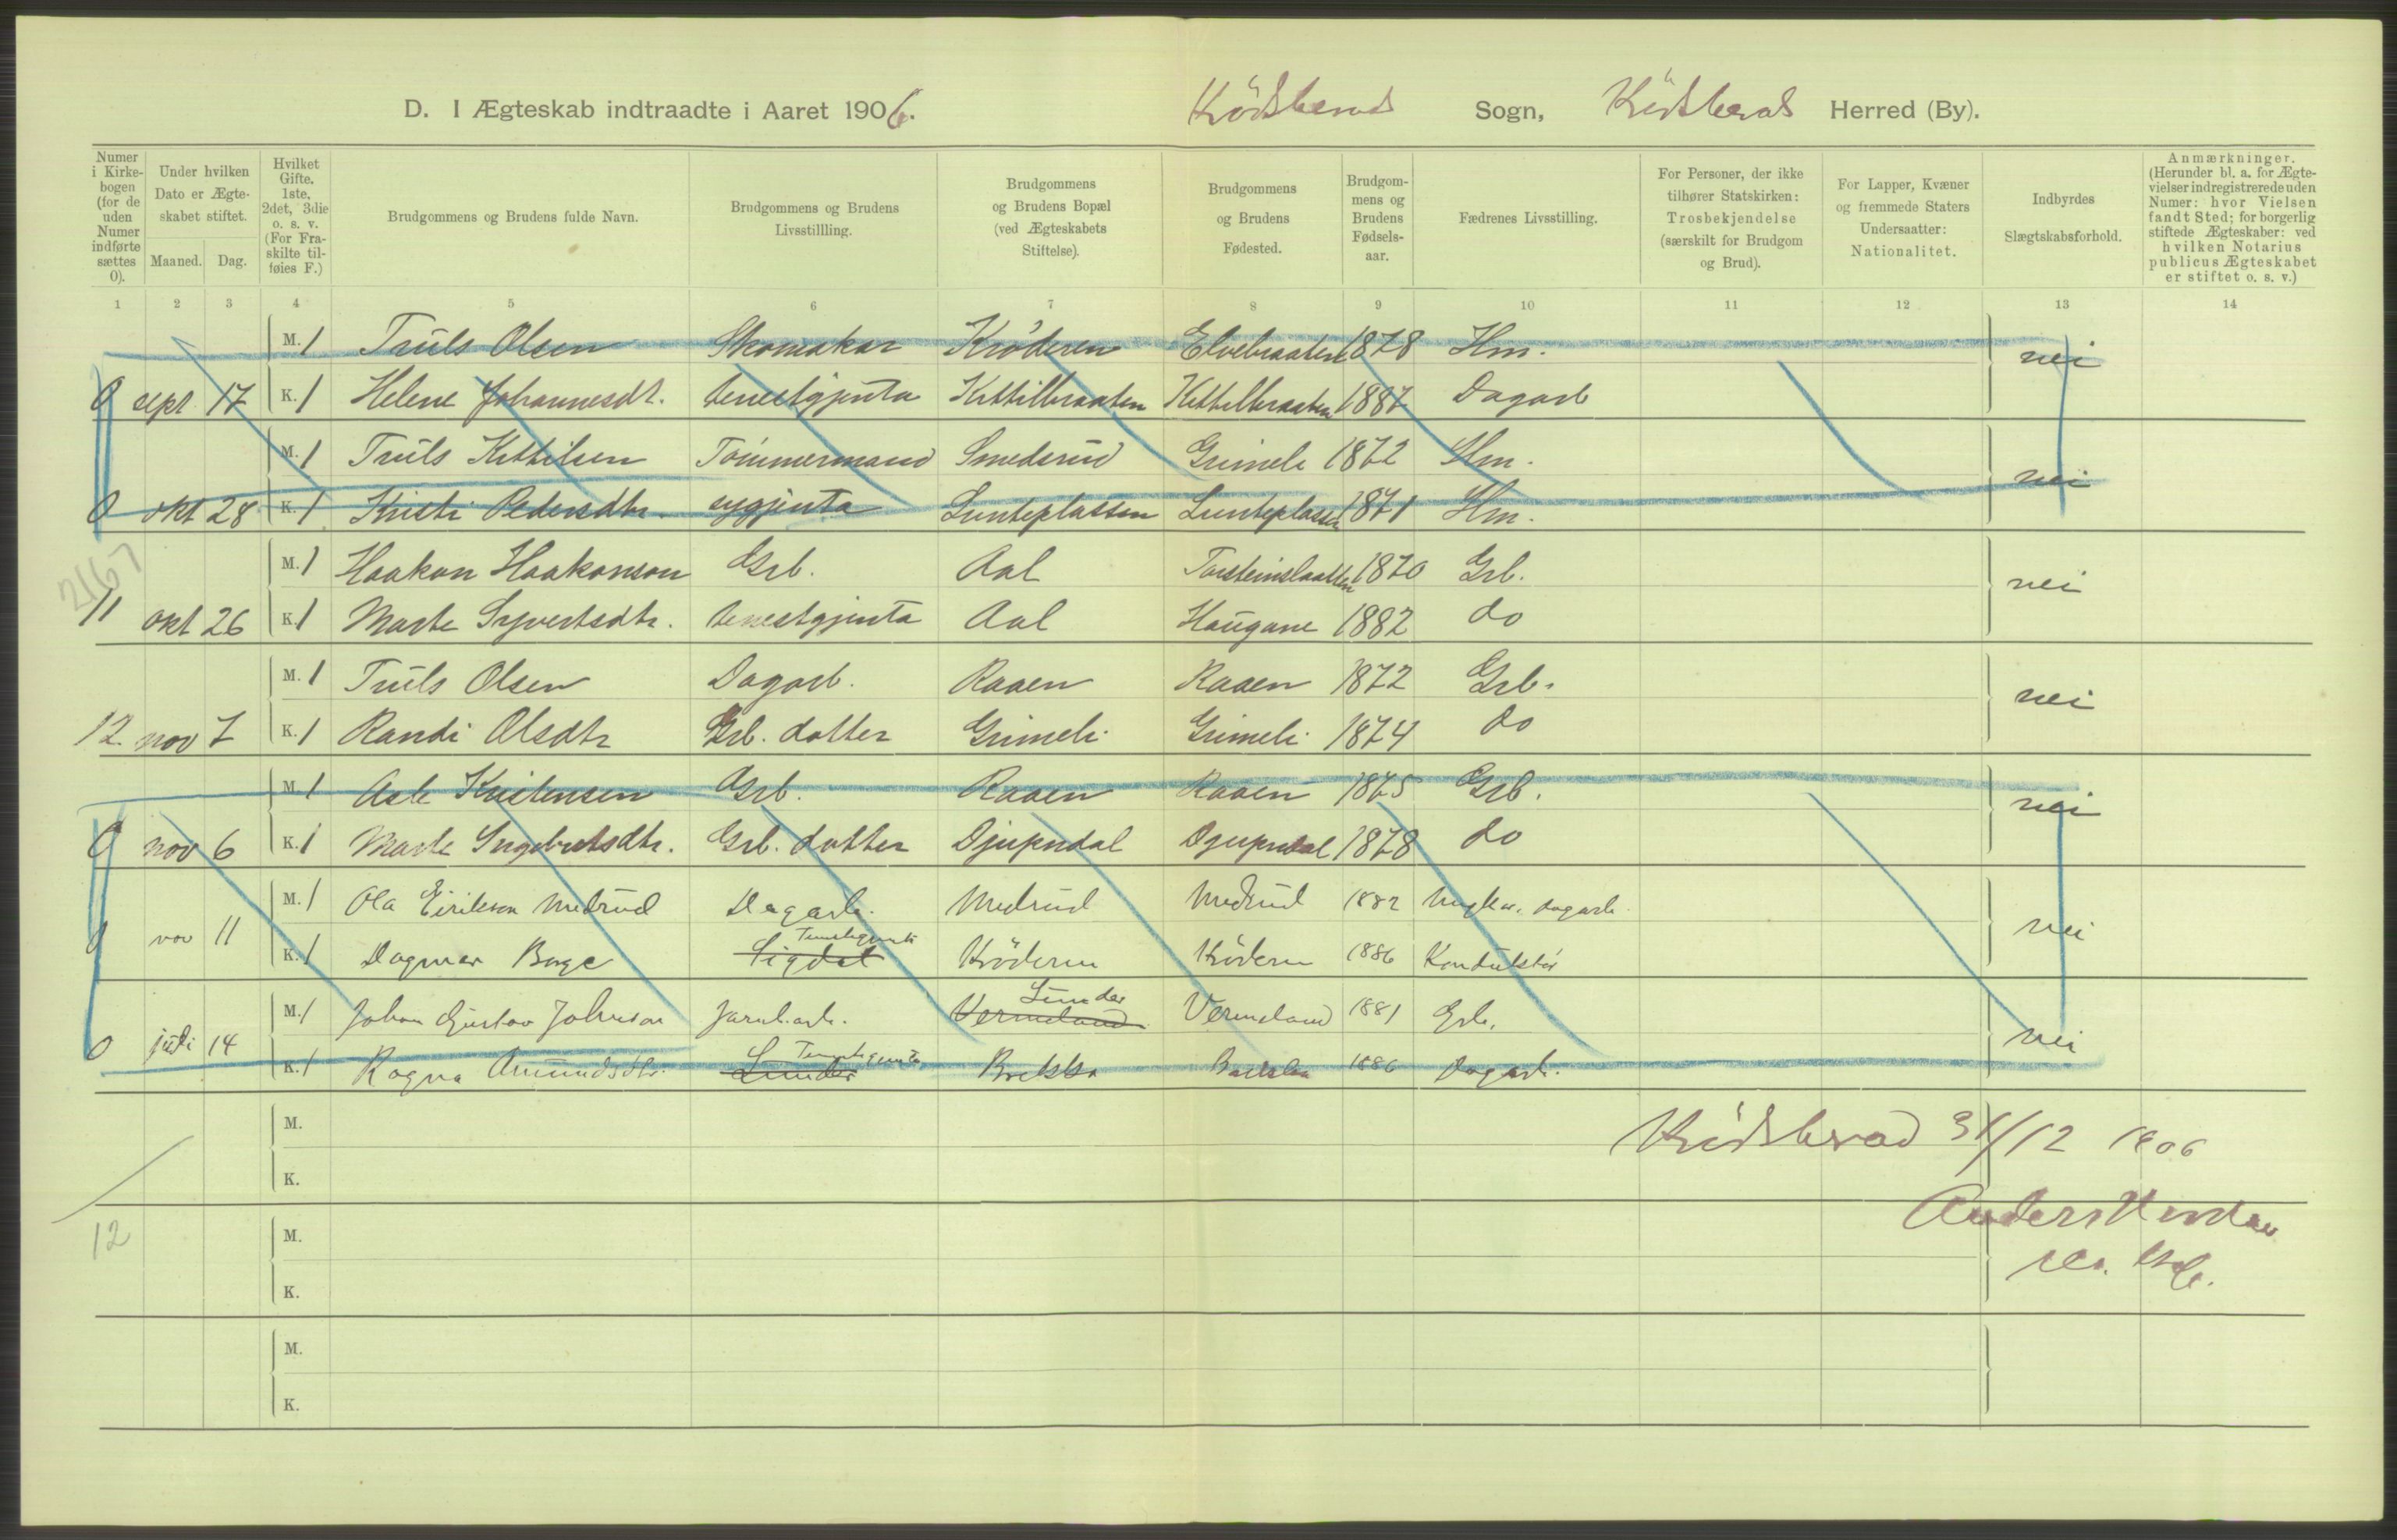 D. I Ægteskab indtraadte i Aaret 1906. Krødsherad Sogn, Krødsherad Herred (By).
Numer i Kirkebogen (for de uden Numer indførte sættes 0). Under hvilken Dato er Ægteskabet stiftet. Maaned. Dag. Hvilket Gifte. 1ste, 2det, 3die o. s. v. (For Fraskilte tilføies F.) Brudgommens og Brudens fulde Navn. Brudgommens og Brudens Livsstillling. Brudgommens og Brudens Bopæl (ved Ægteskabets Stiftelse). Brudgommens og Brudens Fødested. Brudgommens og Brudens Fødselsaar. Fædrenes Livsstilling. For Personer, der ikke tilhører Statskirken: Trosbekjendelse (særskilt for Brudgom og Brud). For Lapper, Kvæner og fremmede Staters Undersaatter: Nationalitet. Indbyrdes Slægtskabsforhold. Anmærkninger. (Herunder bl. a. for Ægtevielser indregistrerede uden Numer: hvor Vielsen fandt Sted; for borgerlig stiftede Ægteskaber: ved hvilken Notarius publicus Ægteskabet er stiftet o. s. v.)
1 2 3 4 5 6 7 8 9 10 11 12 13 14
M. 1 Truls Olsen Skomakar Krøderen Elvebraaten 1878 Hm. nei
0 sept 17 K. 1 Helene Johannesdt. tenestgjenta Kittilbraaten Kittilbraaten 1887 Dagarb
M. 1 Truls Kittilsen Tømmermand Smederud Grimeli 1872 Hm. nei
0 okt 28 K. 1 Kristi Pedersdtr. sygjenta Lunteplassen Lunteplassen 1871 Hm.
2167
M. 1 Haakon Haakonson Grb. Aal Torsteinslaatten 1870 Grb. nei
11 okt 26 K. 1 Marte Syvertsdtr. tenestgjenta Aal Haugane 1882 do
M. 1 Truls Olsen Dagarb. Raaen Raaen 1872 Grb. nei
12 nov 7 K. 1 Randi Olsdtr Grb. dotter Grimeli Grimeli 1874 do
M. 1 Asle Kristensen Grb. Raaen Raaen 1875 Grb. nei
0 nov 6 K. 1 Marte Ingebretsdtr. Grb. dotter Djupedal Djupedal 1878 do
M. 1 Ola Eirikson Medrud Dagarb. Medrud Medrud 1882 dagarb. nei
0 nov 11 K. 1 Dagmar Sigdal Tenestgjenta Krøderen Krøderen 1886 Konduktør
M. 1 Johan Gustav Johnson Jarnb.arb. Vermeland Lunder Vermeland 1881 Grb. nei
0 juli 14 K. 1 Ragna Amundsdtr. Lunder Tenestgjenta 1886 Dagarb.
M. Krødsherad 31/12 1906
K.
12 M. Anders
K.
M.
K.